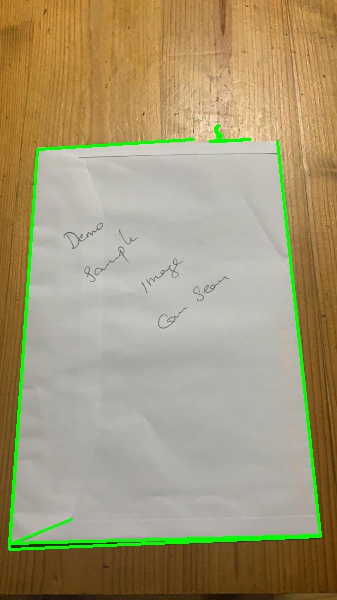 Demo
Sample
Image
Cam Scan